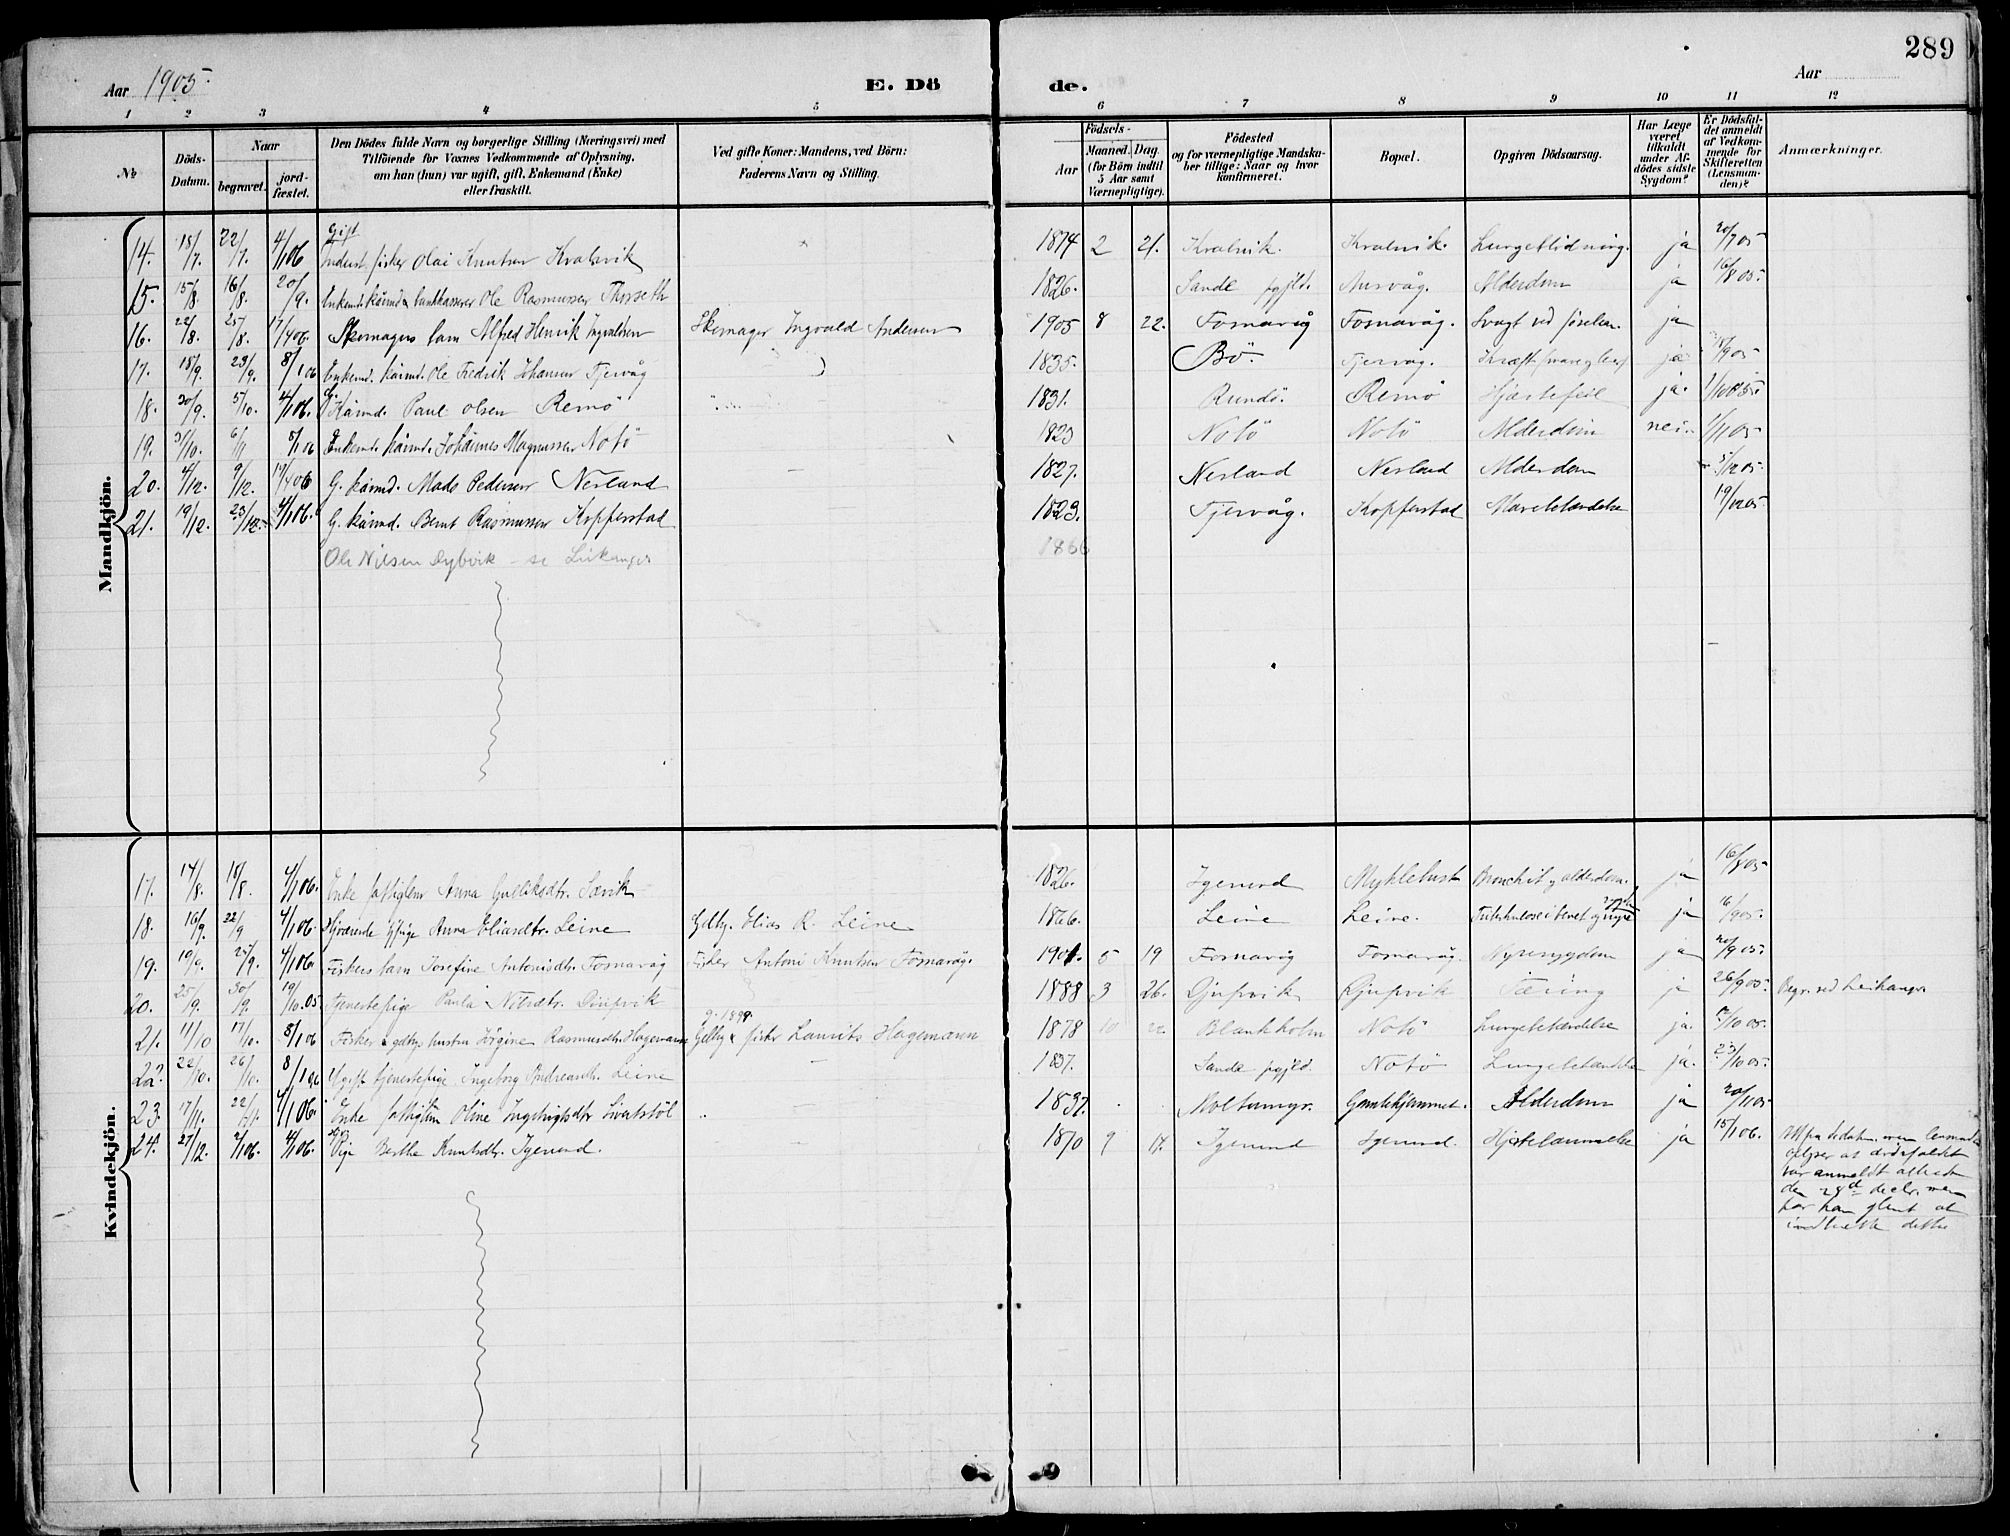 289
Aar 1905.
E. Dö
de.
Aar
1 2 3 4 5 6 7 8 9 10 11 12
No
Döds-Datum.
Naar
begravet.
jord-fæstet.
Den Dödes fulde Navn og borgerlige Stilling (Næringsvei) med
Tilföiende for Voxnes Vedkommende af Oplysning,
om han (hun) var ugift, gift, Enkemand (Enke)
eller fraskilt.
Ved gifte Koner: Mandens, ved Börn:
Faderens Navn og Stilling.
Födsels-
Aar
Maaned. Dag.
(for Börn indtil
5 Aar samt
Værnepligtige).
Födested
og for værnepligtige Mandska-
ber tillige: Naar og hvor
konfirmeret.
Bopæl.
Opgiven Dödsaarsag.
Har Læge
været
tilkaldt
under Af-
dödes sidste
Sygdom?
Er Dödsfal-
det anmeldt
af Vedkom-
mende for
Skifteretten
(Lensman-
den)?
Anmærkninger.
Mandkjön.
Gift
14. 18/7. 22/7. 4/106 Inderst, fisker Olai Knutsen Kvalsvik 1874 2 21. Kvalsvik. Kvalsvik. Lungeblödning. ja 20/7 05
15. 15/8. 16/8. 20/9. Enkemd. kårmd & bankkasserer Ole Rasmussen Thorseth 1826. Sande pgjld. Aurvåg. Alderdom ja 16/8 05.
16. 22/8. 25/8. 17/406. Skomagers barn Alfred Henrik Ingvaldsen Skomager Ingvald Andersen 1905 8 22. Fosnavåg Fosnavåg. Svagt ved föselen. ja
17. 18/9. 23/9. 8/106 Enkemd. kårmd. Ole Fredrik Johansen Tjervåg 1835. Bö. Tjervåg. ja 18/9 05
18. 30/9. 5/10. 4/106. G. Kårmd. Paul Olsen Remö 1831. Rundö. Remö Hjertefeil ja.
19. 31/10. 6/11 8/106 Enkemd. kårmd. Johannes Magnussen Notö 1823 Notö Notö Alderdom nei. 1/11 05
20. 4/12. 9/12. 17/406 G. kårmd. Mads Pedersen Nerland 1827. Nerland Nerland Alderdom 5/12 05.
21. 19/12. 23/12. 4/106. G. kårmd. Bernt Rasmussen Kopperstad 1829. Tjervåg. Kopperstad Mavebetændelse 19/1205.
Ole Nilsen Dybvik - se Leikanger 1866
Kvindekjön.
17. 14/8. 18/8. 4/106. Enke fattiglem Anna Gulliksdtr. Sævik 1826. Igesund Myklebust Bronchit og alderdom. ja 16/8 05
18. 16/9. 22/9 4/106. Hjværende Pige Anna Eliasdtr. Leine Gdbr. Elias R. Leine 1866. Leine Leine. Tuberkulose i benet og nyre ja 16/905.
19. 19/9. 25/9. 4/106 Fiskers barn Josefine Antonisdtr. Fosnavåg Fisker Antoni Knutsen Fosnavåg. 1901 5 19 Fosnavåg Fosnavåg. Nyresygdom ja 20/9 05.
20. 25/9. 30/9. 19/10.05. Tjenestepige Paula Nilsdtr. Djupvik 1888 3 26. Djupvik Djupvik Tæring ja 26/905. Begr. ved Leikanger
g. 1899.
21. 11/10 17/10. 8/106 Fisker & gdbrs hustru Jörgine Rasmusdtr. Hagemann Gdbr & fisker Laurits Hagemann 1878 10 22 Blankholm Notö Lungebetændelse ja. 17/10 05.
22. 22/10. 26/10. 8/106 Ugift tjenestepige Ingeborg Andreasdtr. Leine 1837. Sande pgjld. Notö Lungebetændelse ja. 23/10 05.
23. 17/11. 22/11. 4/106. Enke fattiglem Oline Ingebrigtsdtr Livatstöl 1837. Moltumyr. Gamlehjemmet. Alderdom ja 20/1105
24. 27/12. 2/106. 4/106. Ug. Pige Berthe Knutsdtr. Igesund. 1870 9 17. Igesund Igesund. Hjertelammelse ja 15/106.
var anmeldt allerede
den 28d decbr. men
har han glemt at
indberette dette